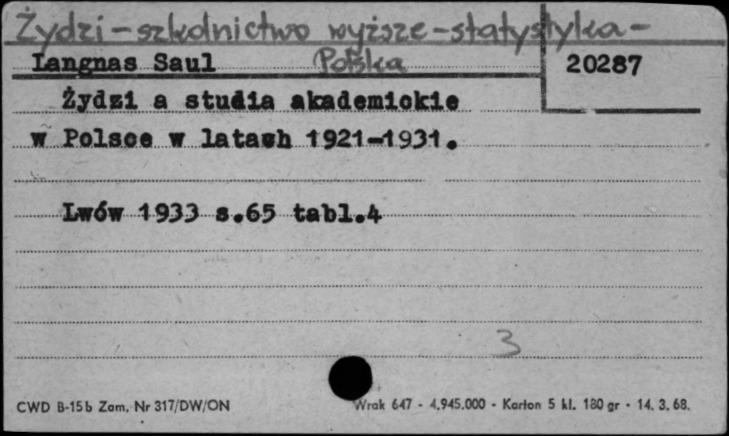 Żydzi - szkolnictwo wyższe - statystyka -
Polska
Langnas Saul 20287
Żydzi a studia akademickie
w Polsce w latach 1921-1931.
Lwów 1933 s.65 tabl.4
3
CWD B-15b Zam. Nr 317/DW/ON Wrak 647 - 4,945.000 - Karton 5 kl. 180 gr - 14. 3. 68.